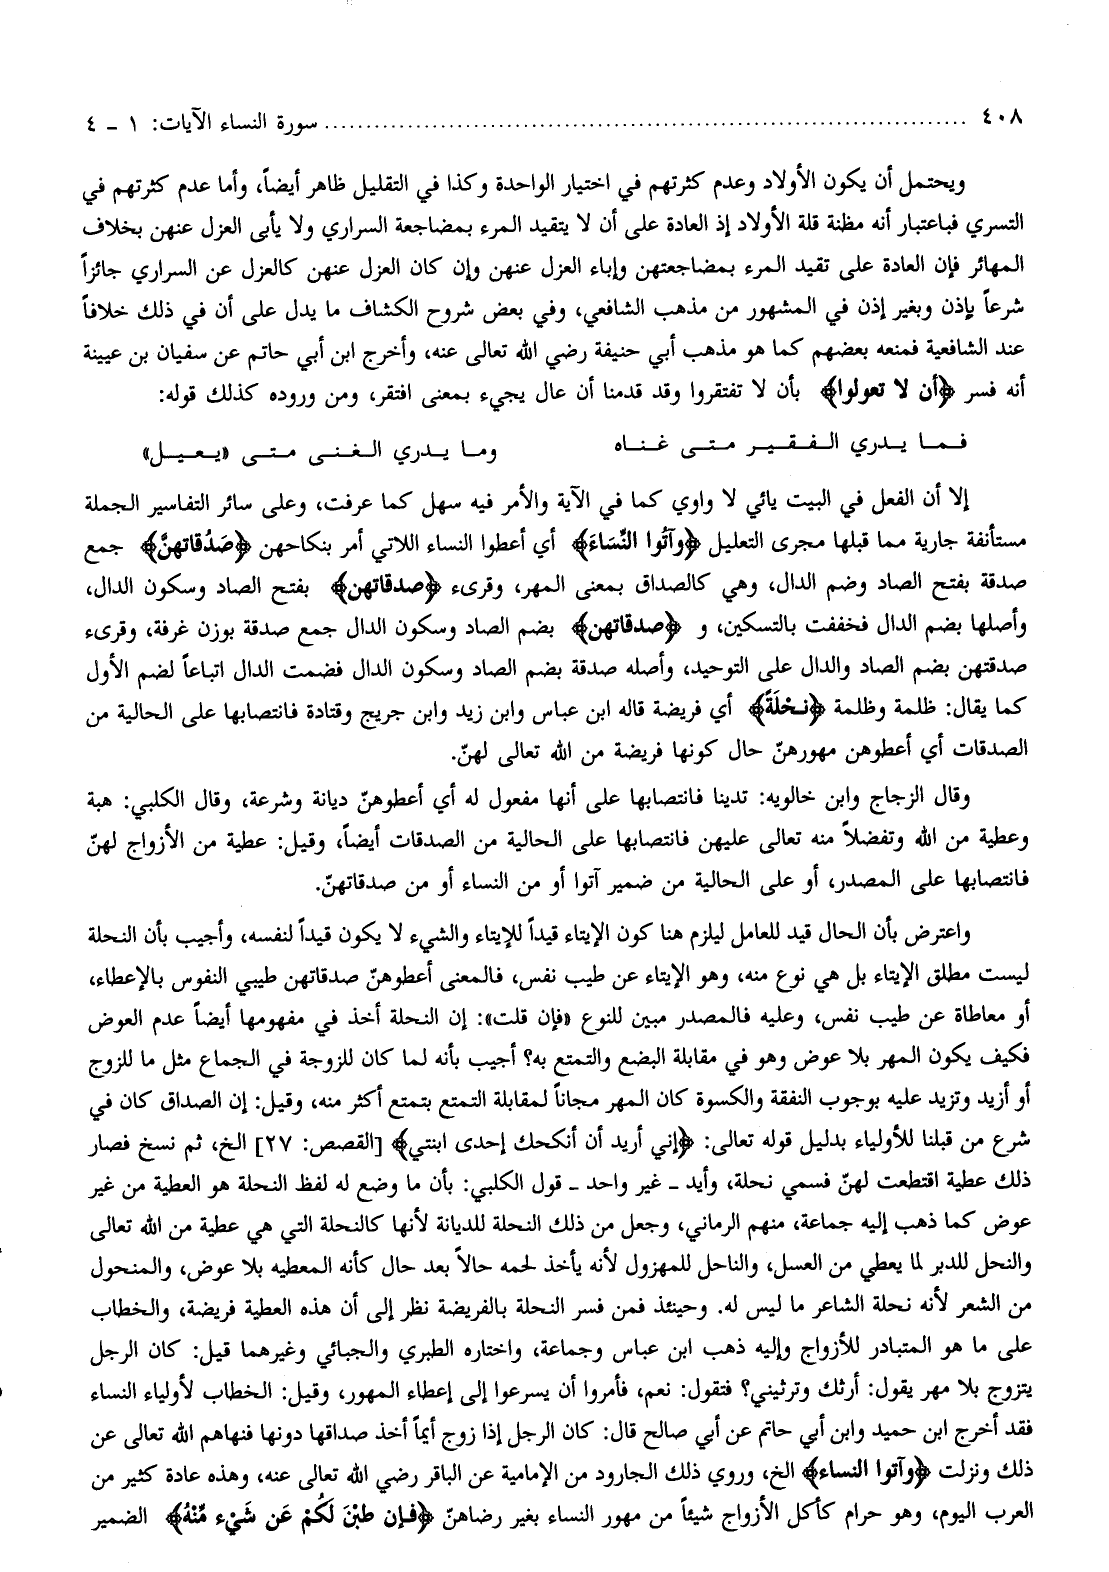 ٤٠٨ ........................................ سورة النساء الآيات: ١ ـ ٤
ويحتمل أن يكون الأولاد وعدم كثرتهم في اختيار الواحدة وكذا في التقليل ظاهر أيضاً، وأما عدم كثرتهم في
التسري فباعتبار أنه مظنة قلة الأولاد إذ العادة على أن لا يتقيد المرء بمضاجعة السراري ولا يأبى العزل عنهن بخلاف
المهائر فإن العادة على تقيد المرء بمضاجعتهن وإباء العزل عنهن وإن كان العزل عنهن كالعزل عن السراري جائزاً
شرعاً بإذن وبغير إذن في المشهور من مذهب الشافعي، وفي بعض شروح الكشاف ما يدل على أن في ذلك خلافاً
عند الشافعية فمنعه بعضهم كما هو مذهب أبي حنيفة رضي الله تعالى عنه، وأخرج ابن أبي حاتم عن سفيان بن عيينة
أنه فسر ﴿أن لا تعولوا﴾ بأن لا تفتقروا وقد قدمنا أن عال يجيء بمعنى افتقر، ومن وروده كذلك قوله:
فـمـا يـدري الـفـقـيـر مـتـى غـنـاه وما يـدري الـغـنى مـتـى «يـعـيـل»
إلا أن الفعل في البيت يائي لا واوي كما في الآية والأمر فيه سهل كما عرفت، وعلى سائر التفاسير الجملة
مستأنفة جارية مما قبلها مجرى التعليل ﴿وآتُوا النِّسَاءَ﴾ أي أعطوا النساء اللاتي أمر بنكاحهن ﴿صَدُقاتهنَّ﴾ جمع
صدقة بفتح الصاد وضم الدال، وهي كالصداق بمعنى المهر، وقرىء ﴿صدقاتهن﴾ بفتح الصاد وسكون الدال،
وأصلها بضم الدال فخففت بالتسكين، و ﴿صدقاتهن﴾ بضم الصاد وسكون الدال جمع صدقة بوزن غرفة، وقرىء
صدقتهن بضم الصاد والدال على التوحيد، وأصله صدقة بضم الصاد وسكون الدال فضمت الدال اتباعاً لضم الأول
كما يقال: ظلمة وظلمة ﴿نِحْلَةً﴾ أي فريضة قاله ابن عباس وابن زيد وابن جريج وقتادة فانتصابها على الحالية من
الصدقات أي أعطوهن مهورهنّ حال كونها فريضة من الله تعالى لهنّ.
وقال الزجاج وابن خالويه: تدينا فانتصابها على أنها مفعول له أي أعطوهنّ ديانة وشرعة، وقال الكلبي: هبة
وعطية من الله وتفضلاً منه تعالى عليهن فانتصابها على الحالية من الصدقات أيضاً، وقيل: عطية من الأزواج لهنّ
فانتصابها على المصدر، أو على الحالية من ضمير آتوا أو من النساء أو من صدقاتهنّ.
واعترض بأن الحال قيد للعامل ليلزم هنا كون الإيتاء قيداً للإيتاء والشيء لا يكون قيداً لنفسه، وأجيب بأن النحلة
ليست مطلق الإيتاء بل هي نوع منه، وهو الإيتاء عن طيب نفس، فالمعنى أعطوهنّ صدقاتهن طيبي النفوس بالإعطاء،
أو معاطاة عن طيب نفس، وعليه فالمصدر مبين للنوع «فإن قلت»: إن النحلة أخذ في مفهومها أيضاً عدم العوض
فكيف يكون المهر بلا عوض وهو في مقابلة البضع والتمتع به؟ أجيب بأنه لما كان للزوجة في الجماع مثل ما للزوج
أو أزيد وتزيد عليه بوجوب النفقة والكسوة كان المهر مجاناً لمقابلة التمتع بتمتع أكثر منه، وقيل: إن الصداق كان في
شرع من قبلنا للأولياء بدليل قوله تعالى: ﴿إني أريد أن أنكحك إحدى ابنتي﴾ [القصص: ٢٧] الخ، ثم نسخ فصار
ذلك عطية اقتطعت لهنّ فسمي نحلة، وأيد ـ غير واحد ـ قول الكلبي: بأن ما وضع له لفظ النحلة هو العطية من غير
عوض كما ذهب إليه جماعة، منهم الرماني، وجعل من ذلك النحلة للديانة لأنها كالنحلة التي هي عطية من الله تعالى
والنحل للدبر لما يعطي من العسل، والناحل للمهزول لأنه يأخذ لحمه حالاً بعد حال كأنه المعطيه بلا عوض، والمنحول
من الشعر لأنه نحلة الشاعر ما ليس له. وحينئذ فمن فسر النحلة بالفريضة نظر إلى أن هذه العطية فريضة، والخطاب
على ما هو المتبادر للأزواج وإليه ذهب ابن عباس وجماعة، واختاره الطبري والجبائي وغيرهما قيل: كان الرجل
يتزوج بلا مهر يقول: أرثك وترثيني؟ فتقول: نعم، فأمروا أن يسرعوا إلى إعطاء المهور، وقيل: الخطاب لأولياء النساء
فقد أخرج ابن حميد وابن أبي حاتم عن أبي صالح قال: كان الرجل إذا زوج أيماً أخذ صداقها دونها فنهاهم الله تعالى عن
ذلك ونزلت ﴿وآتوا النساء﴾ الخ، وروي ذلك الجارود من الإمامية عن الباقر رضي الله تعالى عنه، وهذه عادة كثير من
العرب اليوم، وهو حرام كأكل الأزواج شيئاً من مهور النساء بغير رضاهنّ ﴿فَإن طبْنَ لَكُمْ عَن شَيْء مِّنْهُ﴾ الضمير